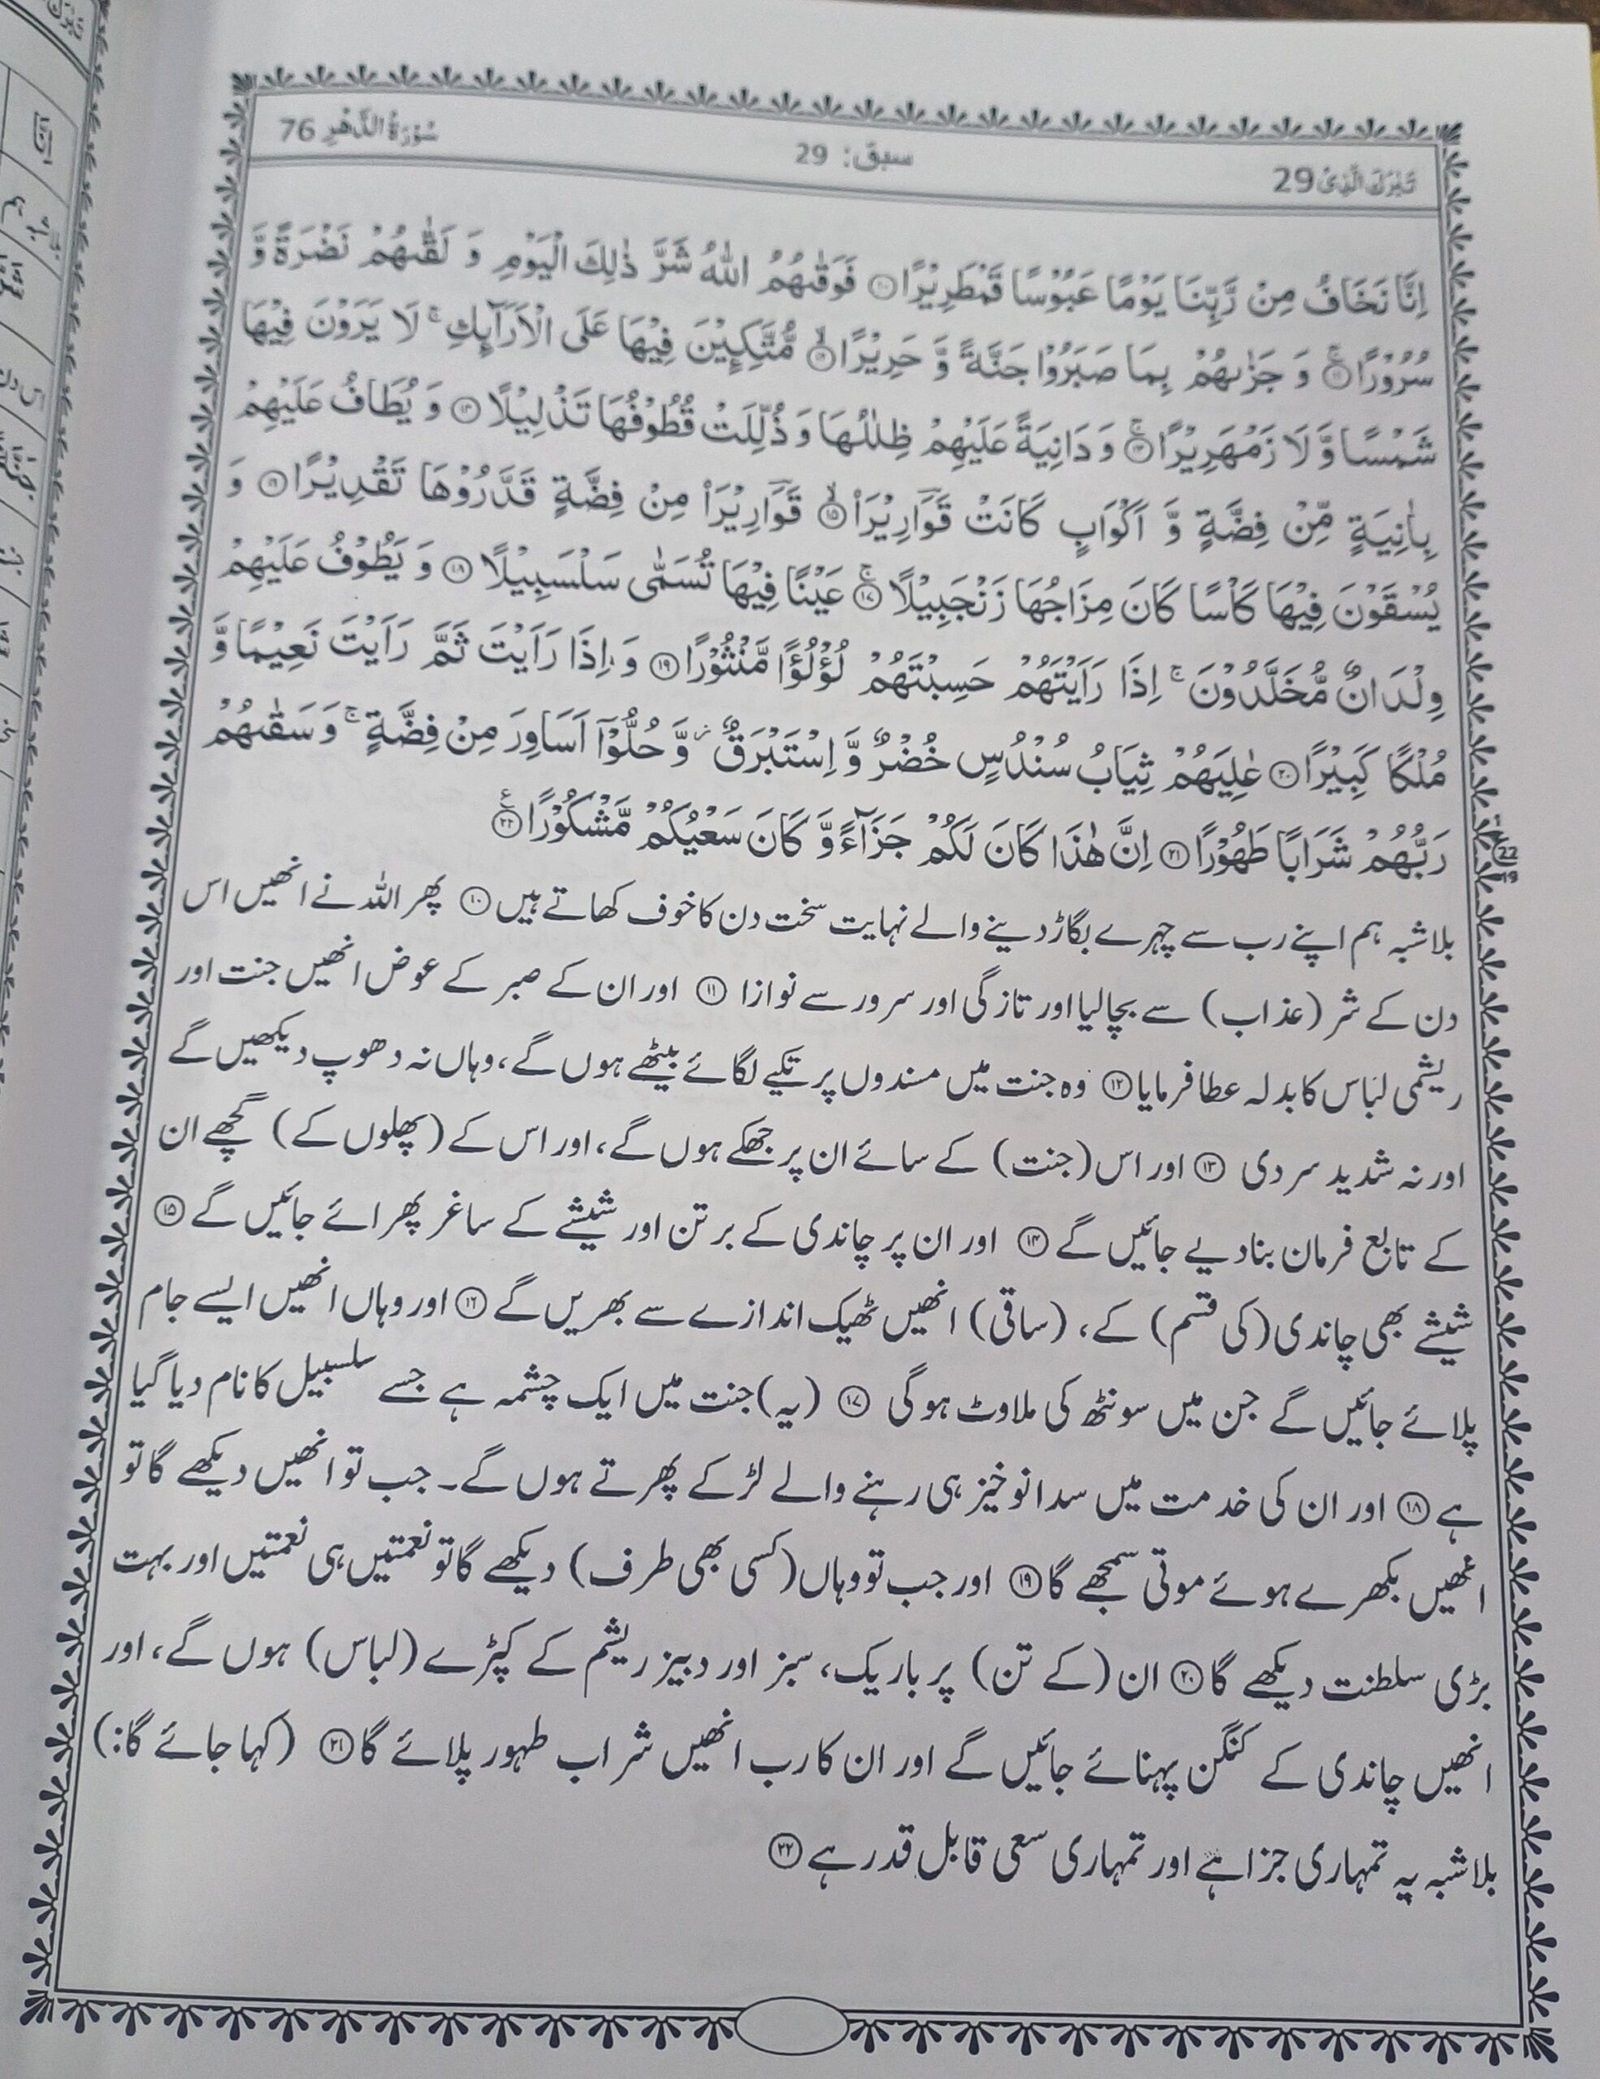 تَبٰرَكَ الَّذِیْ 29 سبق: 29 سُوْرَةُ الدَّهْرِ 76
اِنَّا نَخَافُ مِنْ رَّبِّنَا یَوْمًا عَبُوْسًا قَمْطَرِیْرًا ۝۱۰ فَوَقٰىهُمُ اللّٰهُ شَرَّ ذٰلِكَ الْیَوْمِ وَ لَقّٰىهُمْ نَضْرَةً وَّ
سُرُوْرًا ۝۱۱ۚ وَ جَزٰىهُمْ بِمَا صَبَرُوْا جَنَّةً وَّ حَرِیْرًا ۝۱۲ۙ مُّتَّكِـِٕیْنَ فِیْهَا عَلَى الْاَرَآىِٕكِ ۚ لَا یَرَوْنَ فِیْهَا
شَمْسًا وَّ لَا زَمْهَرِیْرًا ۝۱۳ۚ وَ دَانِیَةً عَلَیْهِمْ ظِلٰلُهَا وَ ذُلِّلَتْ قُطُوْفُهَا تَذْلِیْلًا ۝۱۴ وَ یُطَافُ عَلَیْهِمْ
بِاٰنِیَةٍ مِّنْ فِضَّةٍ وَّ اَكْوَابٍ كَانَتْ قَؔوَارِیْرَاۡ ۝۱۵ۙ قَؔوَارِیْرَاۡ مِنْ فِضَّةٍ قَدَّرُوْهَا تَقْدِیْرًا ۝۱۶ وَ
یُسْقَوْنَ فِیْهَا كَاْسًا كَانَ مِزَاجُهَا زَنْجَبِیْلًا ۝۱۷ۚ عَیْنًا فِیْهَا تُسَمّٰى سَلْسَبِیْلًا ۝۱۸ وَ یَطُوْفُ عَلَیْهِمْ
وِلْدَانٌ مُّخَلَّدُوْنَ ۚ اِذَا رَاَیْتَهُمْ حَسِبْتَهُمْ لُؤْلُؤًا مَّنْثُوْرًا ۝۱۹ وَ اِذَا رَاَیْتَ ثَمَّ رَاَیْتَ نَعِیْمًا وَّ
مُلْكًا كَبِیْرًا ۝۲۰ عٰلِیَهُمْ ثِیَابُ سُنْدُسٍ خُضْرٌ وَّ اِسْتَبْرَقٌ ؗ وَّ حُلُّوْۤا اَسَاوِرَ مِنْ فِضَّةٍ ۚ وَ سَقٰىهُمْ
رَبُّهُمْ شَرَابًا طَهُوْرًا ۝۲۱ اِنَّ هٰذَا كَانَ لَكُمْ جَزَآءً وَّ كَانَ سَعْیُكُمْ مَّشْكُوْرًا ۝۲۲ۧ
بلاشبہ ہم اپنے رب سے چہرے بگاڑ دینے والے نہایت سخت دن کا خوف کھاتے ہیں ۝۱۰ پھر اللہ نے انھیں اس
دن کے شر (عذاب) سے بچا لیا اور تازگی اور سرور سے نوازا ۝۱۱ اور ان کے صبر کے عوض انھیں جنت اور
ریشمی لباس کا بدلہ عطا فرمایا ۝۱۲ وہ جنت میں مسندوں پر تکیے لگائے بیٹھے ہوں گے، وہاں نہ دھوپ دیکھیں گے
اور نہ شدید سردی ۝۱۳ اور اس (جنت) کے سائے ان پر جھکے ہوں گے، اور اس کے (پھلوں کے) گچھے ان
کے تابع فرمان بنا دیے جائیں گے ۝۱۴ اور ان پر چاندی کے برتن اور شیشے کے ساغر پھرائے جائیں گے ۝۱۵
شیشے بھی چاندی (کی قسم) کے، (ساقی) انھیں ٹھیک اندازے سے بھریں گے ۝۱۶ اور وہاں انھیں ایسے جام
پلائے جائیں گے جن میں سونٹھ کی ملاوٹ ہوگی ۝۱۷ (یہ) جنت میں ایک چشمہ ہے جسے سلسبیل کا نام دیا گیا
ہے ۝۱۸ اور ان کی خدمت میں سدا نوخیز ہی رہنے والے لڑکے پھرتے ہوں گے۔ جب تو انھیں دیکھے گا تو
انھیں بکھرے ہوئے موتی سمجھے گا ۝۱۹ اور جب تو وہاں (کسی بھی طرف) دیکھے گا تو نعمتیں ہی نعمتیں اور بہت
بڑی سلطنت دیکھے گا ۝۲۰ ان (کے تن) پر باریک، سبز اور دبیز ریشم کے کپڑے (لباس) ہوں گے، اور
انھیں چاندی کے کنگن پہنائے جائیں گے اور ان کا رب انھیں شراب طہور پلائے گا ۝۲۱ (کہا جائے گا:)
بلاشبہ یہ تمہاری جزا ہے اور تمہاری سعی قابل قدر ہے ۝۲۲